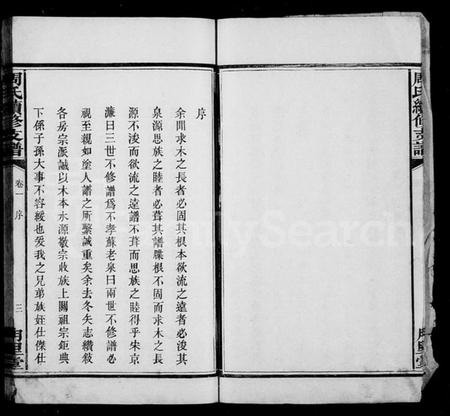 周氏續修支譜
序
余聞求木之長者必固其根本欲流之遠者必浚其
泉源思族之睦者必葺其譜牒根不固而求木之長
源不浚而欲流之遠譜不葺而思族之睦得乎朱京
濂曰三世不修譜爲不孝蘇老泉曰兩世不修譜必
視至親如塗人譜之所繫誠重矣余去冬矢志纘敘
各房宗派誠以木本水源敬宗收族上關祖宗鉅典
下係子孫大事不容緩也爰我之兄弟族姪仕傑仕
周氏續修支譜
卷一 序
三
FamilySearch